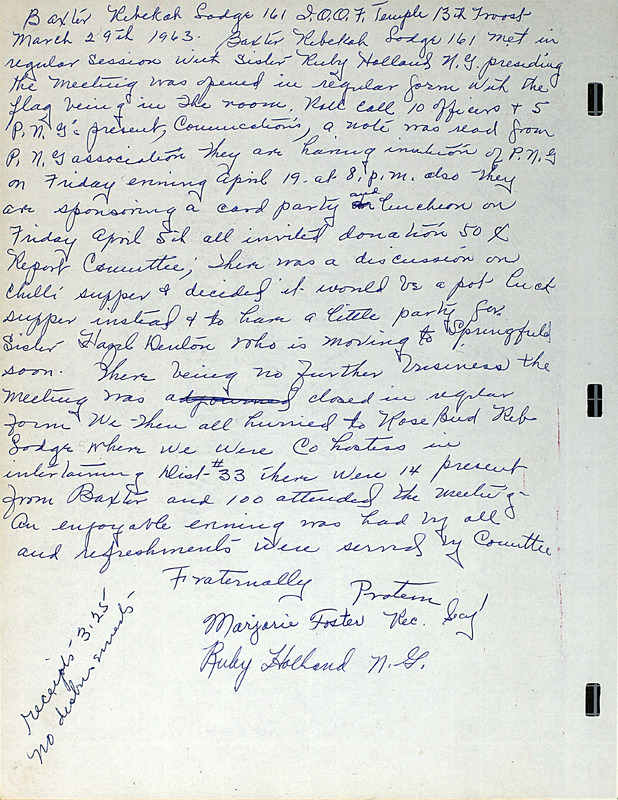 Baxter Rebekah Lodge 161 I.O.O.F. Temple 13th Troost
March 29th 1963. Baxter Rebekah Lodge 161 met in
regular session with Sister Ruby Holland N.G. presiding
the meeting was opened in regular form with the
flag being in the room, Roll call 10 officers + 5
P.N.G's present, Communications, a note was read from
P.N.G association they are having invation of P.N.G
on Friday evning April 19. at 8. p.m. also they
are sponsoring a card party and luncheon on
Friday April 5th all invited donation 50 ¢
Report Committee; There was a discussion on
chilli supper & decided it would be a pot luck
supper instead & to have a little party for
Sister Hazel Denton who is moving to Springfield
soon. There being no further business the
meeting was adjourned closed in regular
form We then all hurried to Rose Bud Reb-
Lodge where we were Co hostess in
intertaining Dist-#33 there were 14 present
from Baxter and 100 attended the meeting-
An enjoyable evning was had by all
and refreshments were served by Committee
Fraternally Protem
Marjorie Foster Rec. Secy
Ruby Holland N.G.
receipts 3.25
no disbursements